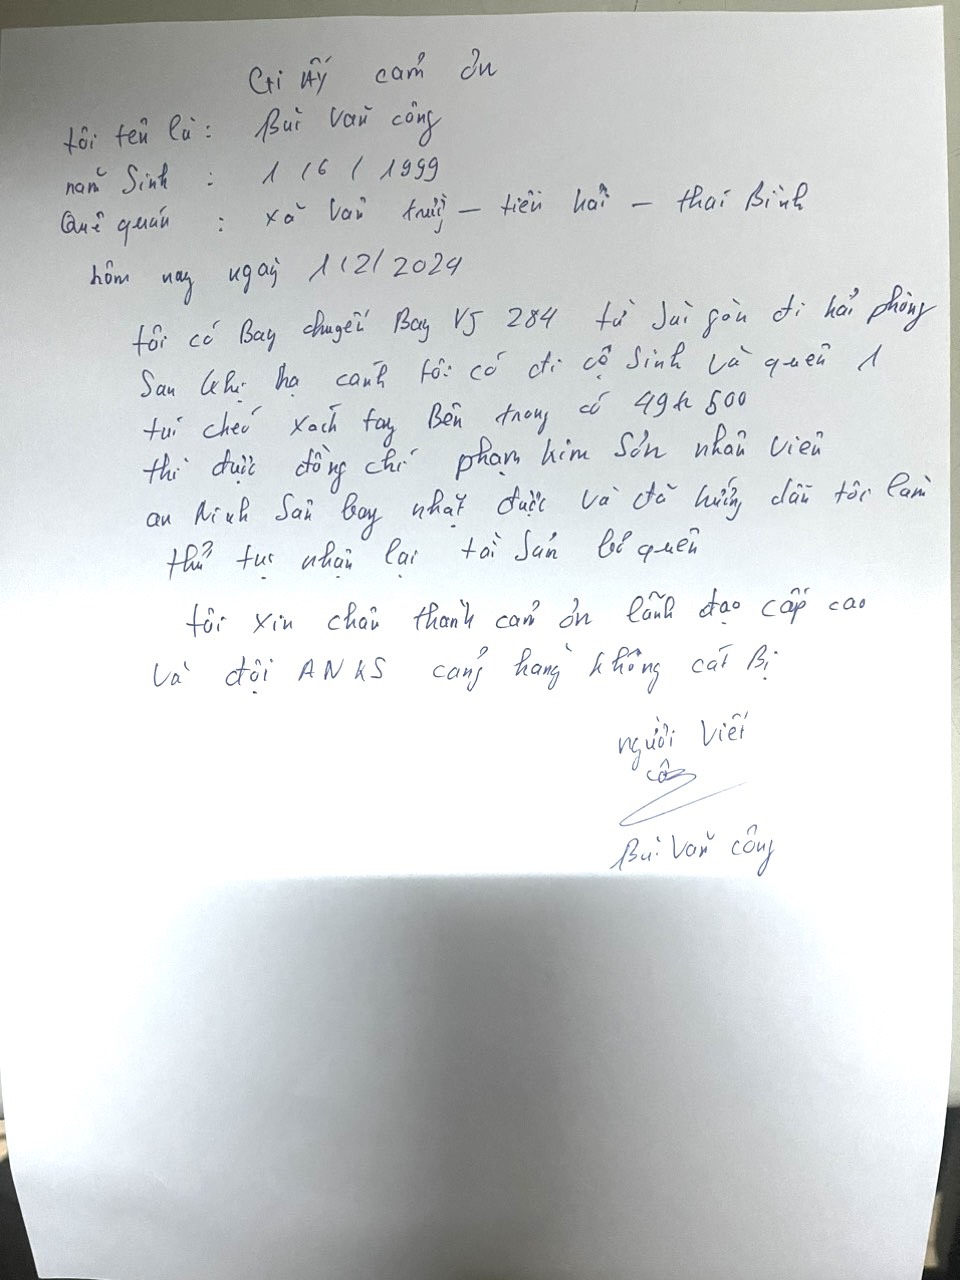 Giấy cảm ơn
tôi tên là : Bùi Văn công
năm Sinh : 1/6/1999
Quê quán : xã Vân trường – tiền hải – thái Bình
hôm nay ngày 1/2/2024
tôi có Bay chuyến Bay VJ 284 từ Sài gòn đi hải phòng
Sau khi hạ cánh tôi có đi vệ Sinh và quên 1
túi chéo xách tay Bên trong có 49tr 500
thì được đồng chí phạm kim Sơn nhân viên
an Ninh Sân bay nhặt được và đã hướng dẫn tôi làm
thủ tục nhận lại tài Sản bỏ quên
tôi xin chân thành cảm ơn lãnh đạo cấp cao
và đội ANKS cảng hàng không cát Bi
người Viết
Bùi Văn công